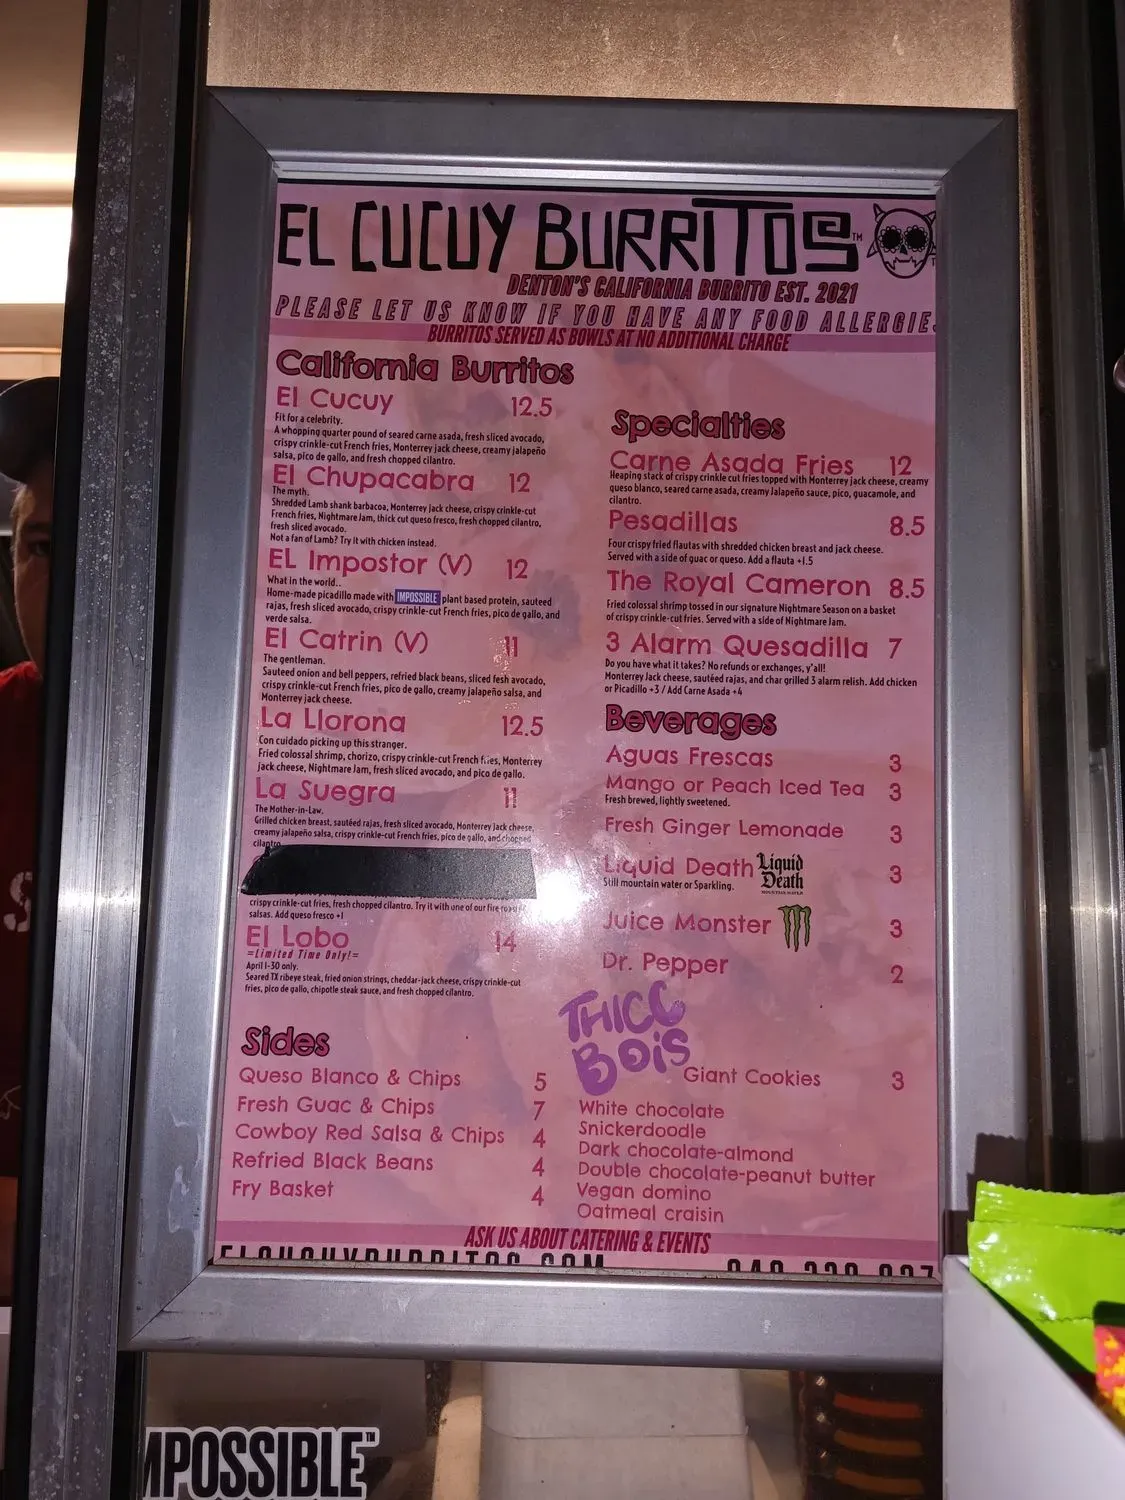 EL CUCUY BURRITOS™
DENTON'S CALIFORNIA BURRITO EST. 2021
PLEASE LET US KNOW IF YOU HAVE ANY FOOD ALLERGIES
BURRITOS SERVED AS BOWLS AT NO ADDITIONAL CHARGE
California Burritos
El Cucuy 12.5
Fit for a celebrity.
A whopping quarter pound of seared carne asada, fresh sliced avocado,
crispy crinkle-cut French fries, Monterrey jack cheese, creamy jalapeño
salsa, pico de gallo, and fresh chopped cilantro.
El Chupacabra 12
The myth.
Shredded Lamb shank barbacoa, Monterey jack cheese, crispy crinkle-cut
French fries, Nightmare Jam, thick cut queso fresco, fresh chopped cilantro,
fresh sliced avocado.
Not a fan of Lamb? Try it with chicken instead.
EL Impostor (V) 12
What in the world..
Home-made picadillo made with IMPOSSIBLE plant based protein, sauteed
rajas, fresh sliced avocado, crispy crinkle-cut French fries, pico de gallo, and
verde salsa.
El Catrin (V) 11
The gentleman.
Sauteed onion and bell peppers, refried black beans, sliced fesh avocado,
crispy crinkle-cut French fries, pico de gallo, creamy jalapeño salsa, and
Monterey jack cheese.
La Llorona 12.5
Con cuidado picking up this stranger.
Fried colossal shrimp, chorizo, crispy crinkle-cut French fries, Monterey
jack cheese, Nightmare Jam, fresh sliced avocado, and pico de gallo.
La Suegra 11
The Mother-in-Law.
Grilled chicken breast, sautéed rajas, fresh sliced avocado, Monterey jack cheese,
creamy jalapeño salsa, crispy crinkle-cut French fries, pico de gallo, and chopped
cilantro
crinkle-cut fries, fresh chopped cilantro. Try it with one of our fire roasted
salsas. Add queso fresco +1
El Lobo 14
=Limited Time Only!=
April 1-30 only.
Seared TX ribeye steak, fried onion strings, cheddar-jack cheese, crispy crinkle-cut
fries, pico de gallo, chipotle steak sauce, and fresh chopped cilantro.
Sides
Queso Blanco & Chips 5
Fresh Guac & Chips 7
Cowboy Red Salsa & Chips 4
Refried Black Beans 4
Fry Basket 4
Specialties
Carne Asada Fries 12
Heaping stack of crispy crinkle cut fries topped with Monterey jack cheese, creamy
queso blanco, seared carne asada, creamy Jalapeño sauce, pico, guacamole, and
cilantro.
Pesadillas 8.5
Four crispy fried flautas with shredded chicken breast and jack cheese.
Served with a side of guac or queso. Add a flauta +1.5
The Royal Cameron 8.5
Fried colossal shrimp tossed in our signature Nightmare Season on a basket
of crispy crinkle-cut fries. Served with a side of Nightmare Jam.
3 Alarm Quesadilla 7
Do you have what it takes? No refunds or exchanges, y'all!
Monterey Jack cheese, sautéed rajas, and char grilled 3 alarm relish. Add chicken
or Picadillo +3 / Add Carne Asada +4
Beverages
Aguas Frescas 3
Mango or Peach Iced Tea 3
Fresh brewed, lightly sweetened.
Fresh Ginger Lemonade 3
Liquid Death Liquid Death MOUNTAIN WATER 3
Still mountain water or Sparkling.
Juice Monster 3
Dr. Pepper 2
THICC
BOIS
Giant Cookies 3
White chocolate
Snickerdoodle
Dark chocolate-almond
Double chocolate-peanut butter
Vegan domino
Oatmeal craisin
ASK US ABOUT CATERING & EVENTS
ELCUCUYBURRITOS.COM
MPOSSIBLE™